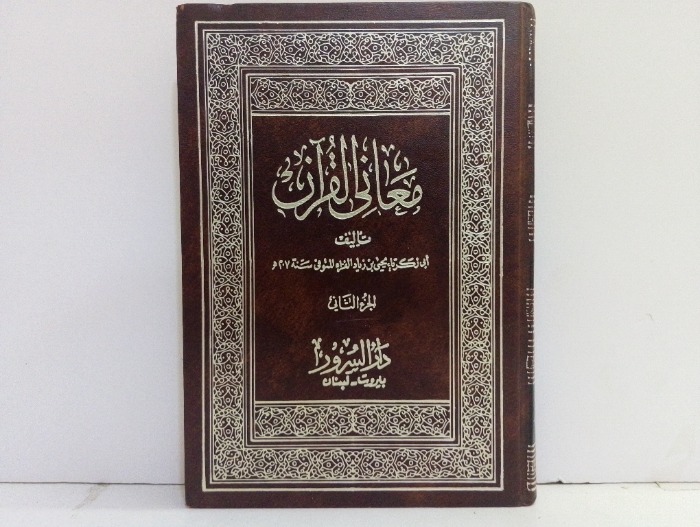 معاني القرآن
تأليف
أبي زكريا يحيى بن زياد الفراء المتوفى سنة ٢٠٧ ه
الجزء الثاني
دار السرور
بيروت - لبنان